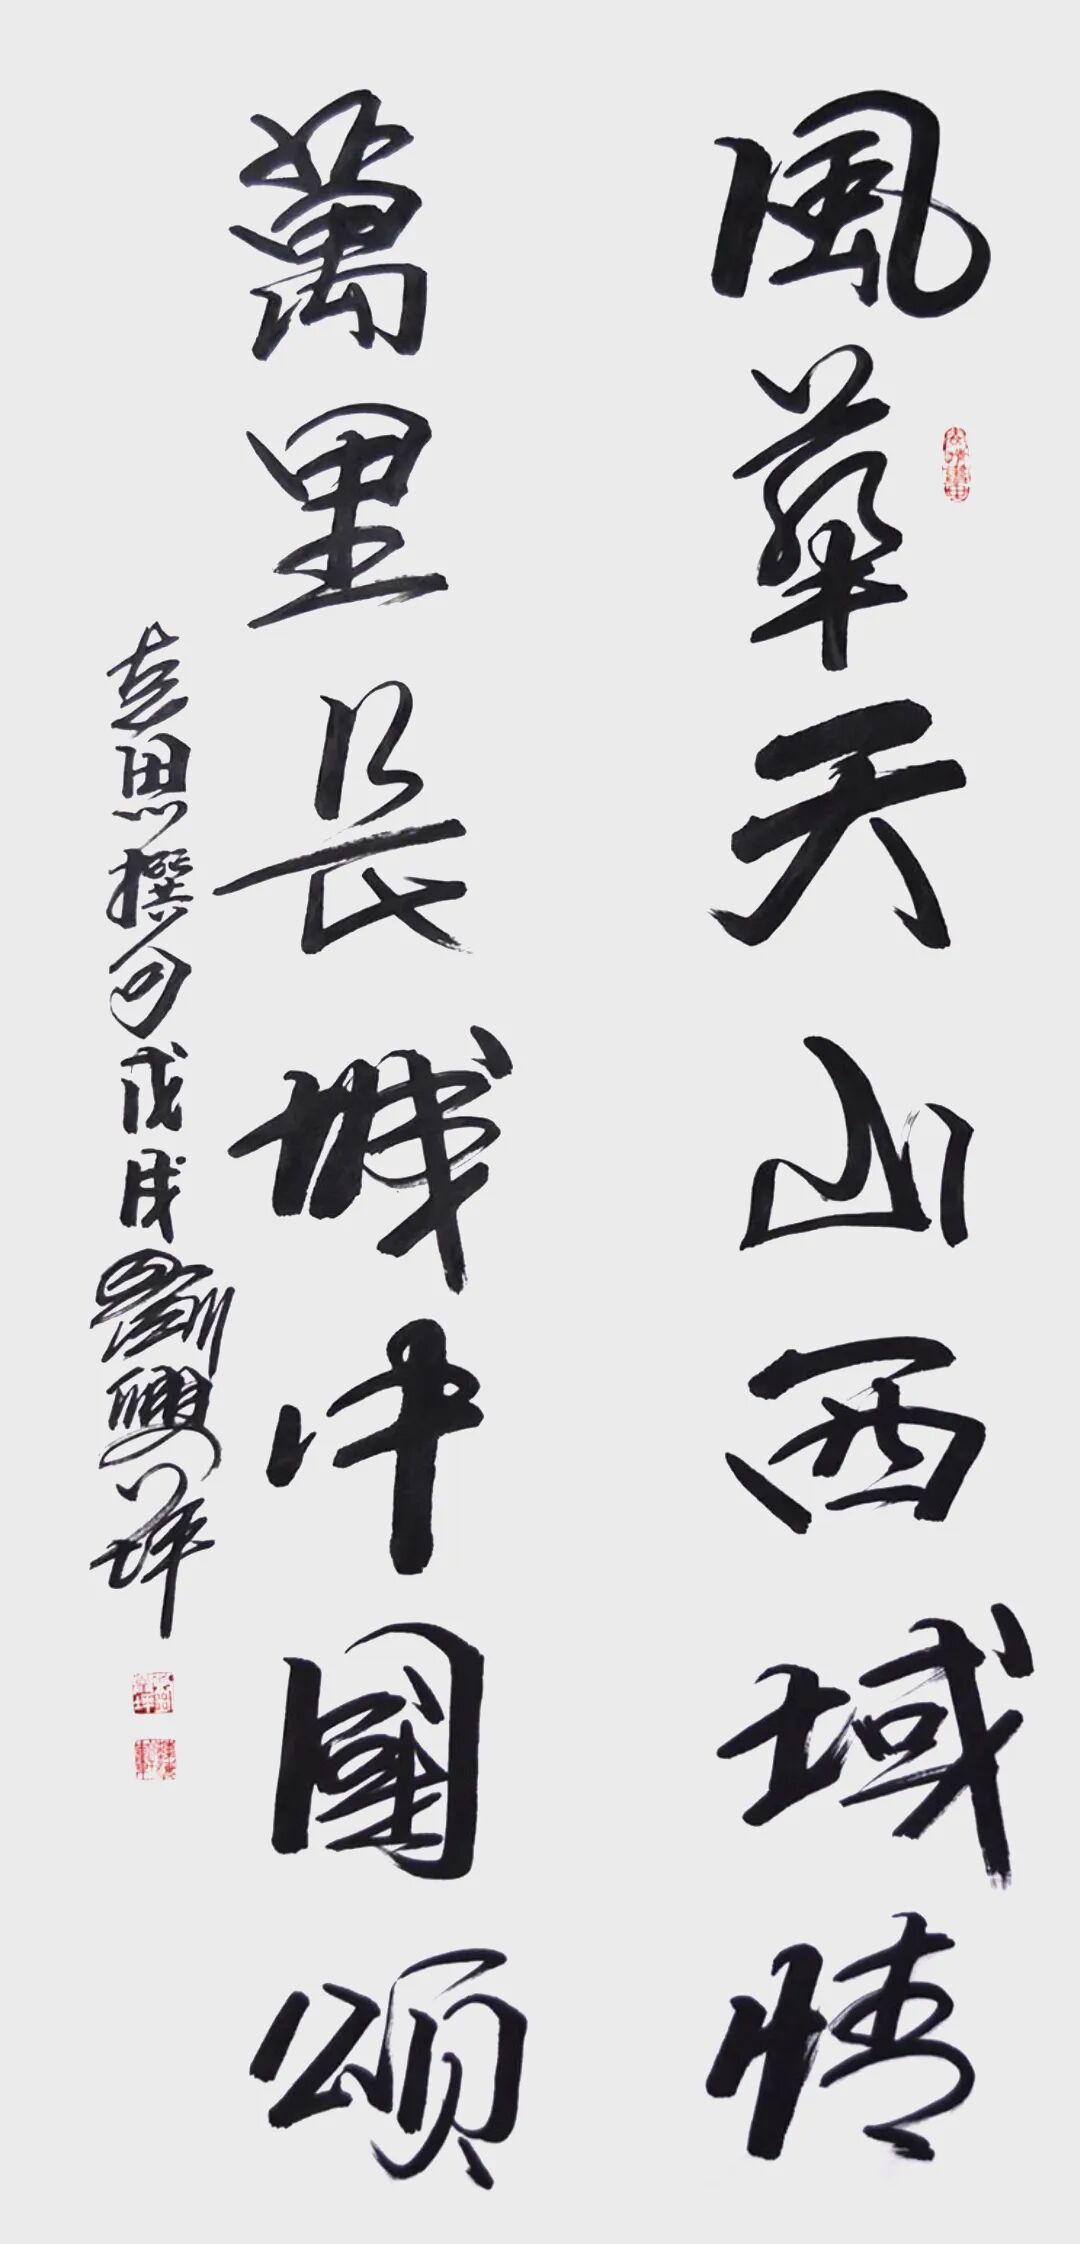 風華天山西域情
萬里長城中國頌
克思撰句戊戌劉興坪